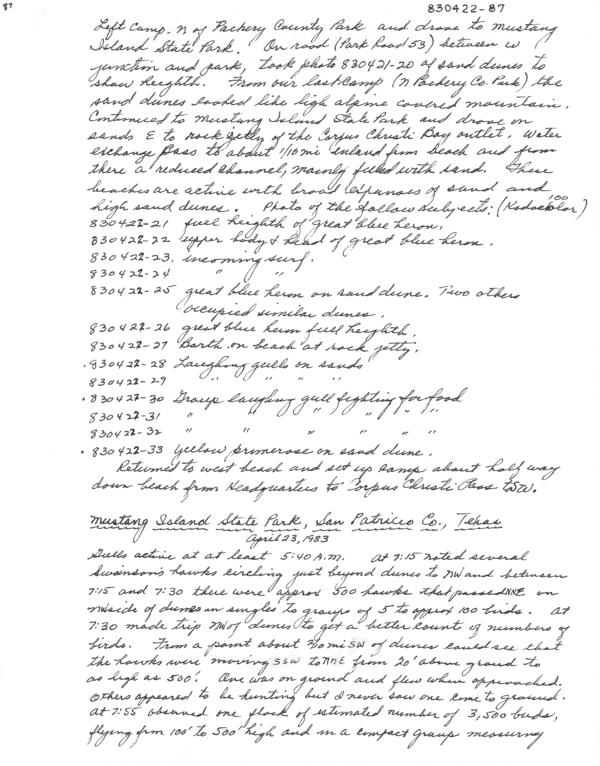 87
830422-87
Left Camp. N of Packery County Park and drove to Mustang
Island State Park. On road (Park Road 53) between w
junction and park, took photo 830421-20 of sand dunes to
show heighth. From our last camp (N Packery Co. Park) the
sand dunes looked like high alpine covered mountain.
Continued to Mustang Island State Park and drove on
sands E to rock jetty of the Corpus Christi Bay outlet. Water
exchange pass to about 1/10 mi inland from beach and from
there a reduced channel, mainly filled with sand. These
beaches are active with broad expanses of sand and
high sand dunes. Photo of the follow subjects: (Kodacolor 100)
830422-21 full heighth of great blue heron.
830422-22 upper body & head of great blue heron.
830422-23. incoming surf.
830422-24 " "
830422-25 great blue heron on sand dune. Two others
occupied similar dunes.
830422-26 great blue heron full heighth.
830422-27 Barth. on beach at rock jetty.
830422-28 Laughing gulls on sands
830422-29 " " " "
830422-30 Group laughing gull fighting for food
830422-31 " " " " " "
830422-32 " " " " " "
830422-33 yellow primerose on sand dune.
Returned to west beach and set up camp about half way
down beach from Headquarters to Corpus Christi Pass to SW.
Mustang Island State Park, San Patricio Co., Texas
April 23, 1983
Gulls active at at least 5:40 A.M. At 7:15 noted several
Swainson's hawks circling just beyond dunes to NW and between
7:15 and 7:30 there were approx 500 hawks that passed NNE on
NW side of dunes in singles to groups of 5 to approx 100 birds. At
7:30 made trip NW of dunes to get a better count of numbers of
birds. From a point about 2/10 mi SW of dunes could see that
the hawks were moving SSW to NNE from 20' above ground to
as high as 500'. One was on ground and flew when approached.
Others appeared to be hunting but I never saw one come to ground.
At 7:55 observed one flock of estimated number of 3,500 birds,
flying from 100' to 500' high and in a compact group measuring